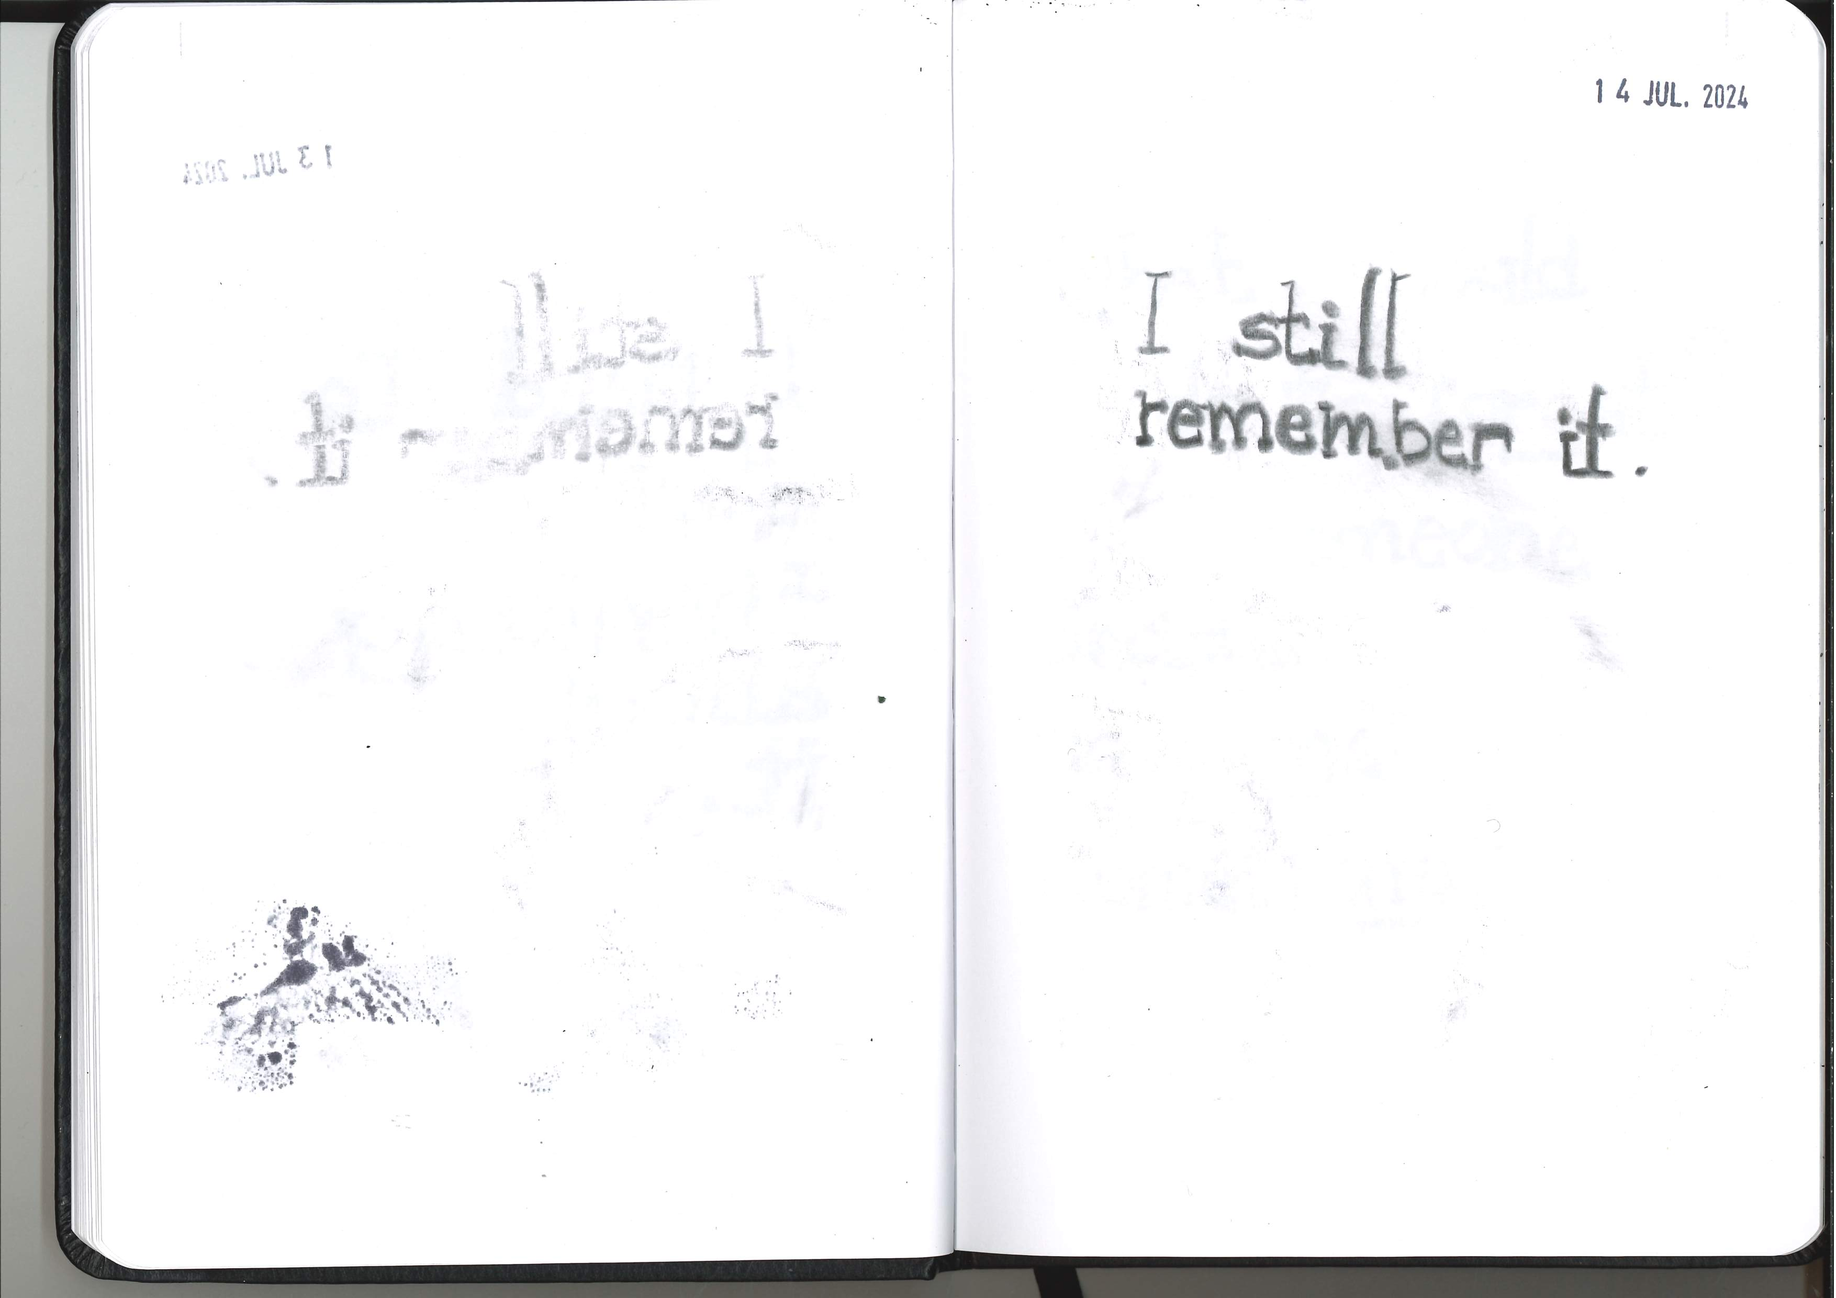 13 JUL. 2024
I still
remem r it.
14 JUL. 2024
I still
remember it.